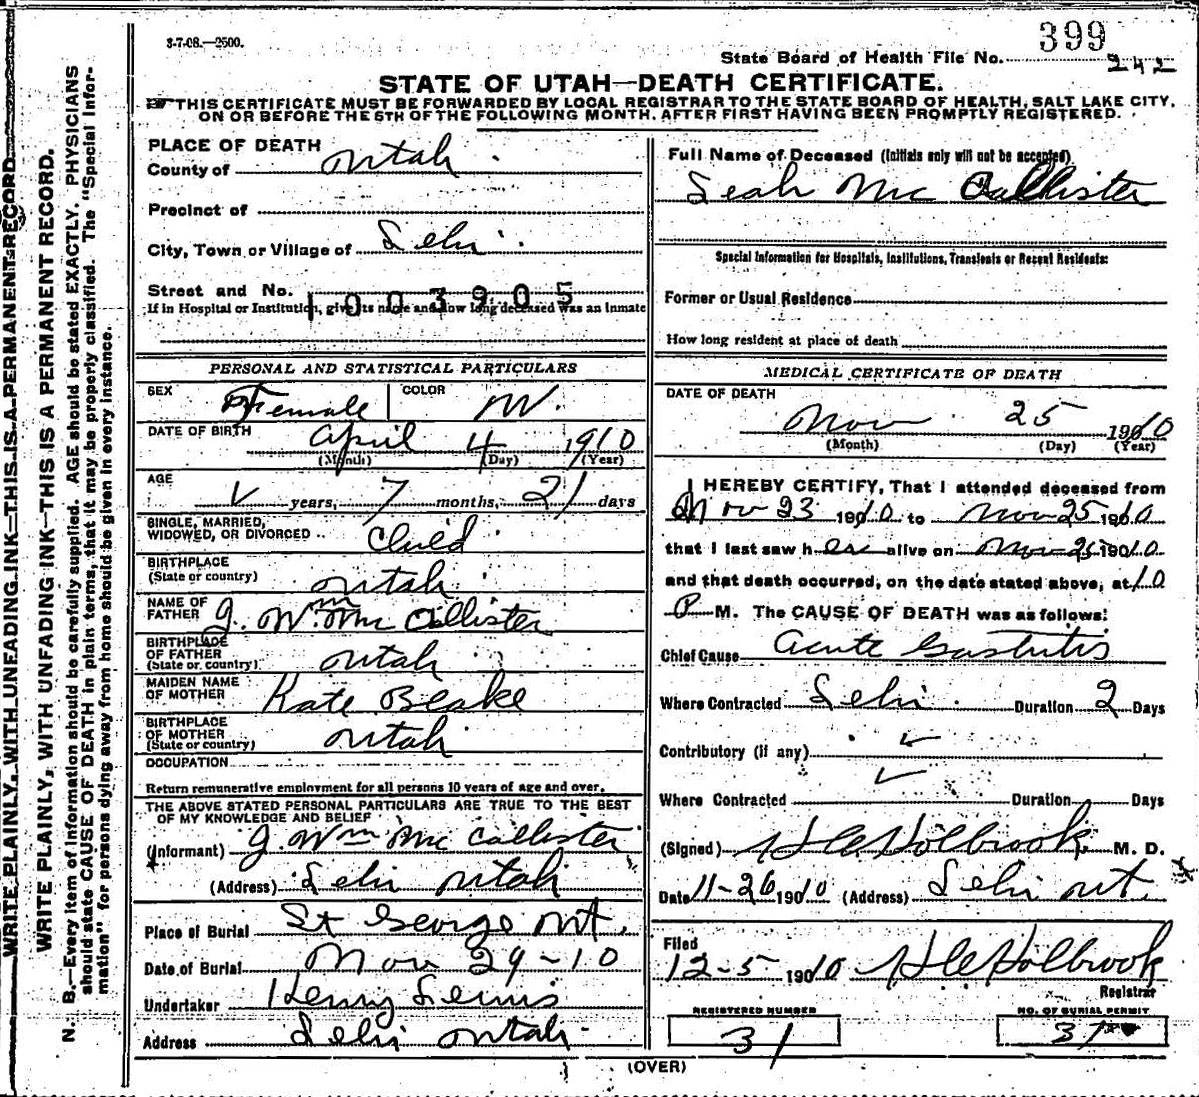 3-7-08.—2500.
399
State Board of Health File No. 242
STATE OF UTAH—DEATH CERTIFICATE.
THIS CERTIFICATE MUST BE FORWARDED BY LOCAL REGISTRAR TO THE STATE BOARD OF HEALTH, SALT LAKE CITY,
ON OR BEFORE THE 5TH OF THE FOLLOWING MONTH, AFTER FIRST HAVING BEEN PROMPTLY REGISTERED.
WRITE PLAINLY, WITH UNFADING INK—THIS IS A PERMANENT RECORD.
WRITE PLAINLY, WITH UNFADING INK—THIS IS A PERMANENT RECORD.
N. B.—Every item of information should be carefully supplied. AGE should be stated EXACTLY. PHYSICIANS
should state CAUSE OF DEATH in plain terms, that it may be properly classified. The "Special Infor-
mation" for persons dying away from home should be given in every instance.
PLACE OF DEATH
County of Utah
Precinct of
City, Town or Village of Lehi
Street and No.
1003905
If in Hospital or Institution, give its name and how long deceased was an Inmate
PERSONAL AND STATISTICAL PARTICULARS
SEX Female COLOR W.
DATE OF BIRTH April 4 1910
(Month) (Day) (Year)
AGE
years, 7 months, 21 days
SINGLE, MARRIED,
WIDOWED, OR DIVORCED Child
BIRTHPLACE
(State or country) Utah
NAME OF
FATHER J. Wm Mc Callister
BIRTHPLACE
OF FATHER
(State or country) Utah
MAIDEN NAME
OF MOTHER Kate Blake
BIRTHPLACE
OF MOTHER
(State or country) Utah
OCCUPATION
Return remunerative employment for all persons 10 years of age and over.
THE ABOVE STATED PERSONAL PARTICULARS ARE TRUE TO THE BEST
OF MY KNOWLEDGE AND BELIEF
(Informant) J. Wm Mc Callister
(Address) Lehi Utah
Place of Burial St George Ut.
Date of Burial Nov 29-10
Undertaker Henry Lewis
Address Lehi Utah
Full Name of Deceased (Initials only will not be accepted)
Leah Mc Callister
Special Information for Hospitals, Institutions, Transients or Recent Residents:
Former or Usual Residence
How long resident at place of death
MEDICAL CERTIFICATE OF DEATH
DATE OF DEATH
Nov 25 1910
(Month) (Day) (Year)
I HEREBY CERTIFY, That I attended deceased from
Nov 23 1910 to Nov 25 1910
that I last saw her alive on Nov 25 1910
and that death occurred, on the date stated above, at 10
P M. The CAUSE OF DEATH was as follows:
Chief Cause Acute Gastritis
Where Contracted Lehi Duration 2 Days
Contributory (if any)
Where Contracted Duration Days
(Signed) H C Holbrook M. D.
Date 11-26 1910 (Address) Lehi Ut.
Filed
12-5 1910 H C Holbrook
Registrar
REGISTERED NUMBER NO. OF BURIAL PERMIT
31 31
(OVER)